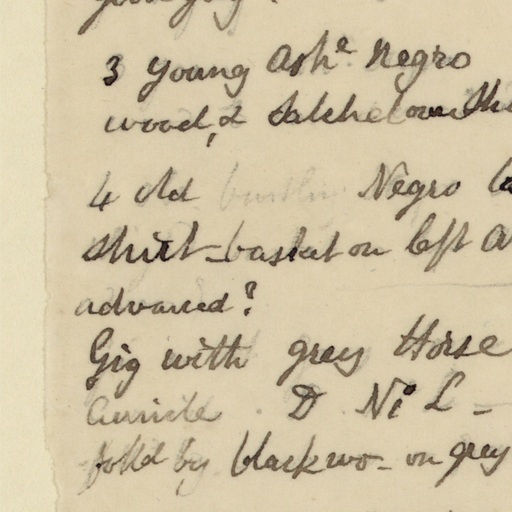 3 young Ashe Negro
wood, & Satchel over Sh
4 old Negro
shirt - basket on left a
advanced?
Gig with grey Horse
D No L -
folld by black wo - on grey